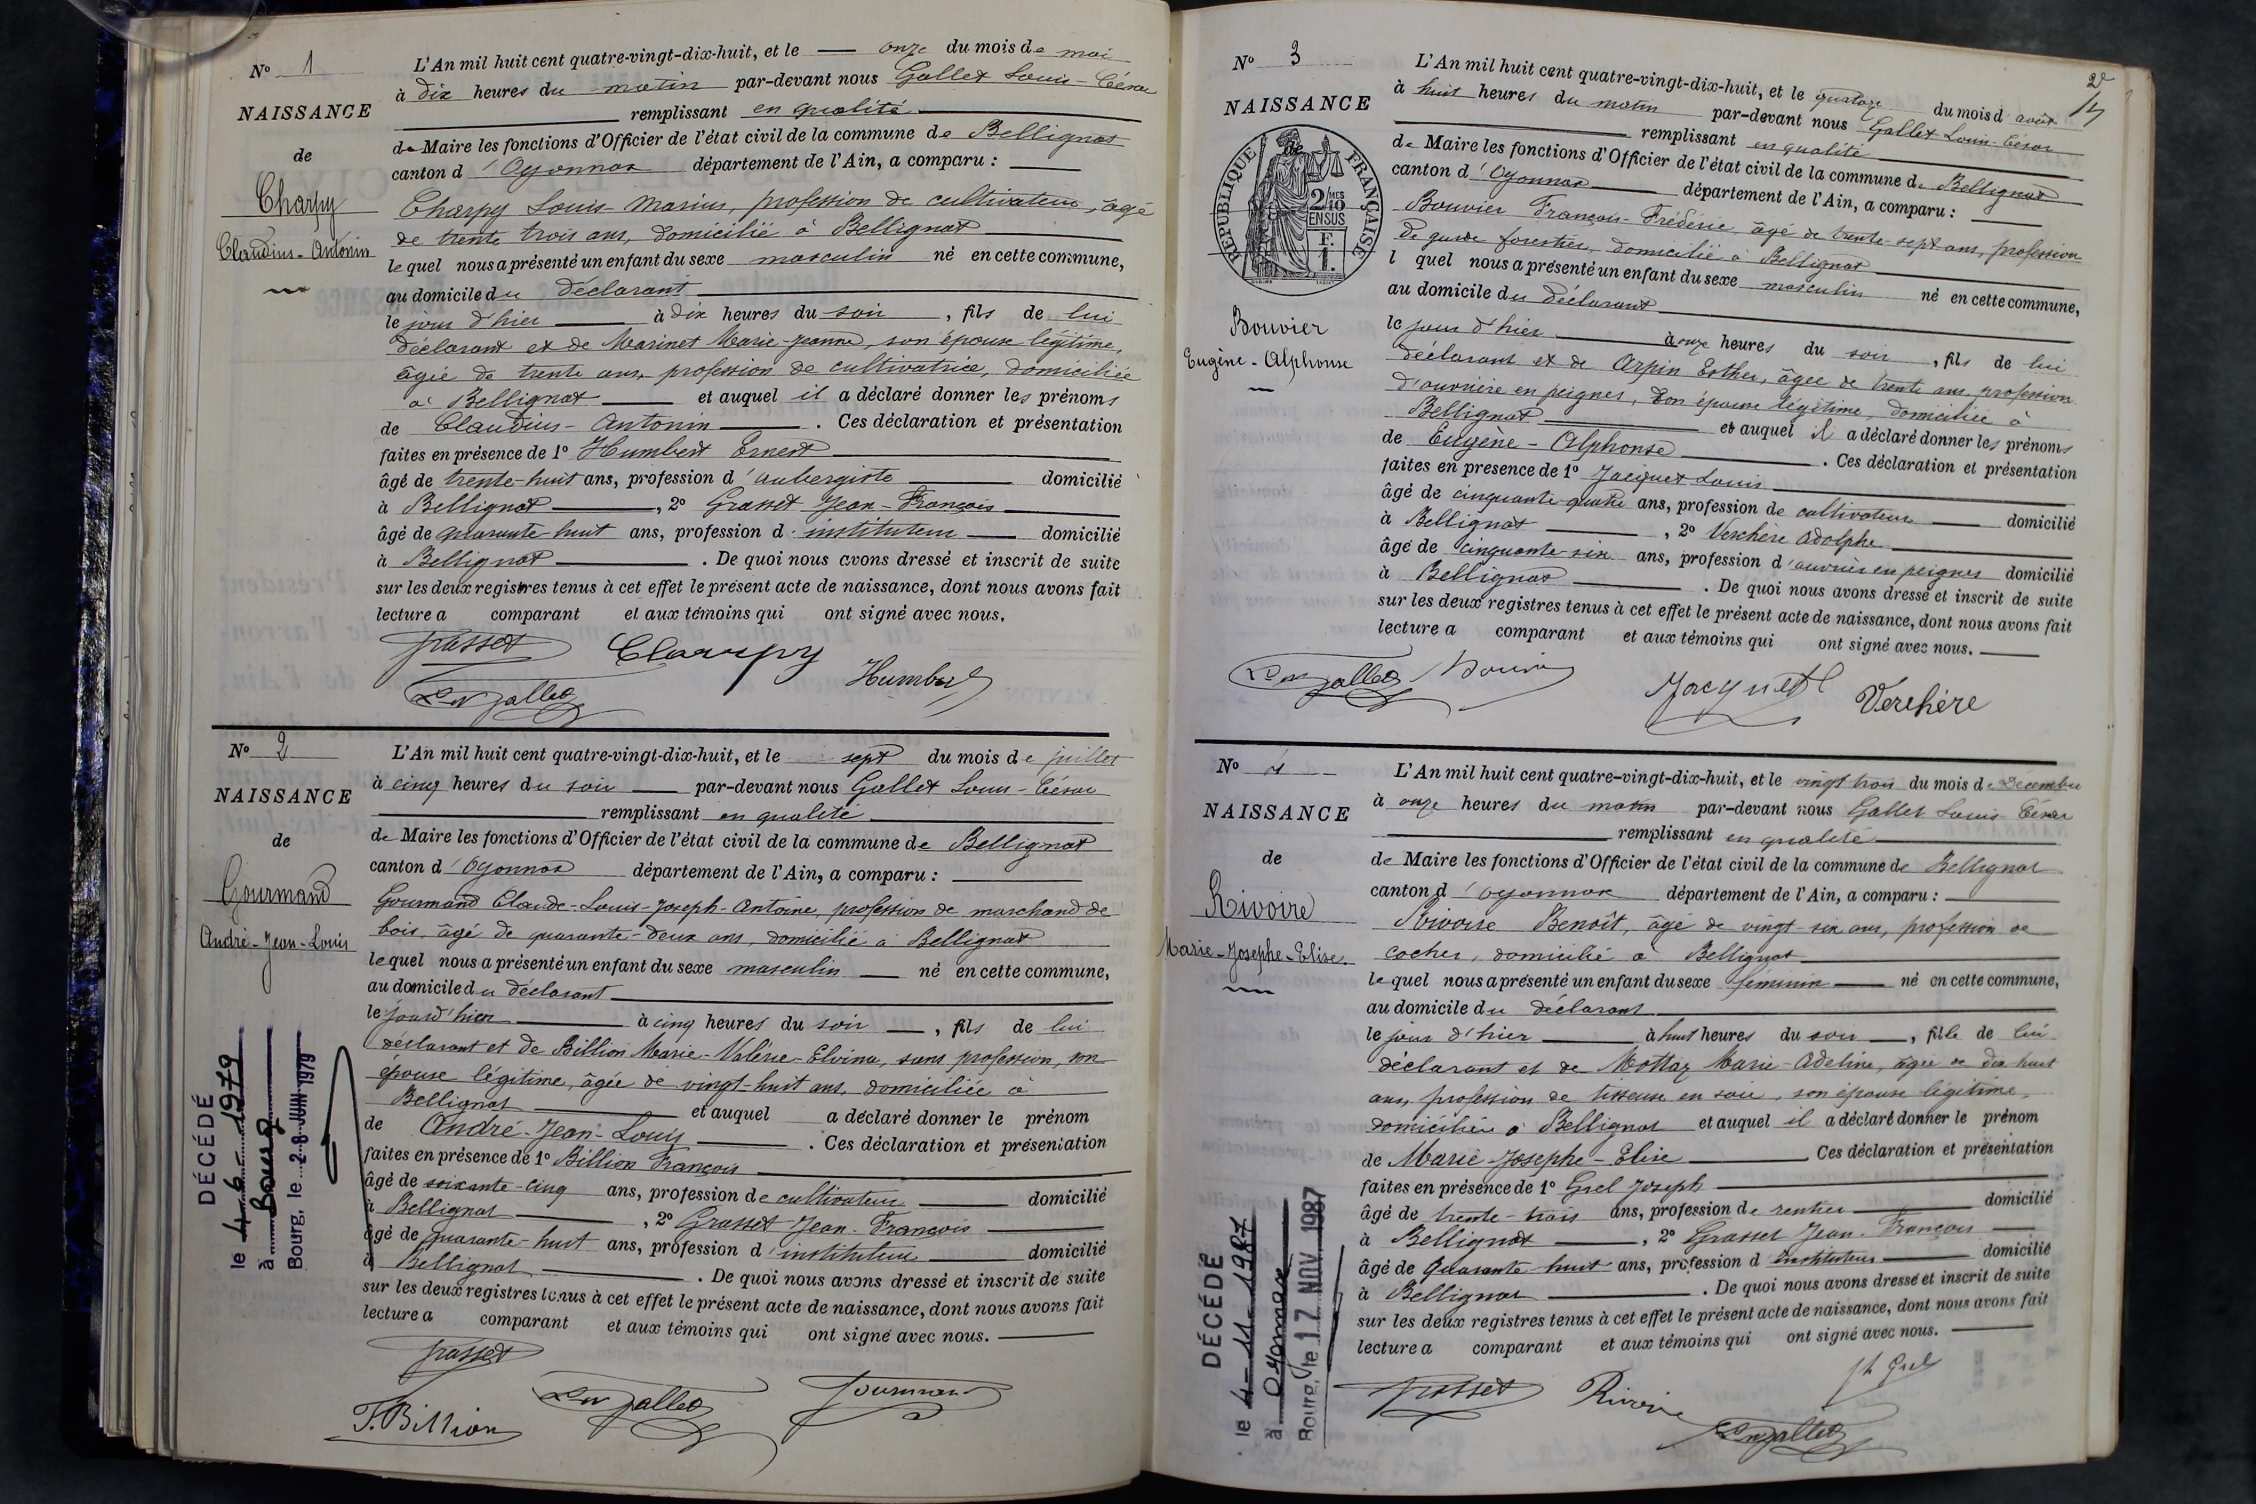 N° 1
NAISSANCE
de
Charpy
Claudius-Antonin
L'An mil huit cent quatre-vingt-dix-huit, et le — onze du mois de mai
à dix heures du matin par-devant nous Gallet Louis-César
remplissant en qualité
de Maire les fonctions d'Officier de l'état civil de la commune de Bellignat
canton d'Oyonnax département de l'Ain, a comparu :
Charpy Louis-Marius, profession de cultivateur, âgé
de trente trois ans, domicilié à Bellignat
lequel nous a présenté un enfant du sexe masculin né en cette commune,
au domicile du déclarant
le jour d'hier à dix heures du soir, fils de lui
déclarant et de Marinet Marie-Jeanne, son épouse légitime,
âgée de trente ans, profession de cultivatrice, domiciliée
à Bellignat et auquel il a déclaré donner les prénoms
de Claudius-Antonin. Ces déclaration et présentation
faites en présence de 1° Humbert Ernest
âgé de trente-huit ans, profession d'aubergiste domicilié
à Bellignat, 2° Grasset Jean-François
âgé de quarante huit ans, profession d'instituteur domicilié
à Bellignat. De quoi nous avons dressé et inscrit de suite
sur les deux registres tenus à cet effet le présent acte de naissance, dont nous avons fait
lecture a comparant et aux témoins qui ont signé avec nous.
Grasset Charpy Humbert
Gallet
N° 2
NAISSANCE
de
Gourmand
André-Jean-Louis
L'An mil huit cent quatre-vingt-dix-huit, et le sept du mois de juillet
à cinq heures du soir par-devant nous Gallet Louis-César
remplissant en qualité
de Maire les fonctions d'Officier de l'état civil de la commune de Bellignat
canton d'Oyonnax département de l'Ain, a comparu :
Gourmand Claude-Louis-Joseph-Antoine, profession de marchand de
bois, âgé de quarante-deux ans, domicilié à Bellignat
lequel nous a présenté un enfant du sexe masculin né en cette commune,
au domicile du déclarant
le jour d'hier à cinq heures du soir, fils de lui
déclarant et de Billion Marie-Valérie-Elvina, sans profession, son
épouse légitime, âgée de vingt-huit ans, domiciliée à
Bellignat et auquel a déclaré donner le prénom
de André-Jean-Louis. Ces déclaration et présentation
faites en présence de 1° Billion François
âgé de soixante-cinq ans, profession de cultivateur domicilié
à Bellignat, 2° Grasset Jean-François
âgé de quarante-huit ans, profession d'instituteur domicilié
à Bellignat. De quoi nous avons dressé et inscrit de suite
sur les deux registres tenus à cet effet le présent acte de naissance, dont nous avons fait
lecture a comparant et aux témoins qui ont signé avec nous.
Grasset
F. Billion Gallet Gourmand
DÉCÉDÉ
le 4-6-1979
à Bourg
Bourg, le 28 JUIN 1979
2
N° 3
NAISSANCE
de
RÉPUBLIQUE FRANÇAISE
2/10 MES
EN SUS
F.
1.
Bouvier
Eugène-Alphonse
L'An mil huit cent quatre-vingt-dix-huit, et le quatorze du mois d août
à huit heures du matin par-devant nous Gallet Louis-César
remplissant en qualité
de Maire les fonctions d'Officier de l'état civil de la commune de Bellignat
canton d'Oyonnax département de l'Ain, a comparu :
Bouvier François-Frédéric âgé de trente-sept ans, profession
de garde forestier, domicilié à Bellignat
l quel nous a présenté un enfant du sexe masculin né en cette commune,
au domicile du déclarant
le jour d'hier à onze heures du soir, fils de lui
déclarant et de Arpin Esther, âgée de trente ans, profession
d'ouvrière en peignes, son épouse légitime, domiciliée à
Bellignat et auquel il a déclaré donner les prénoms
de Eugène-Alphonse. Ces déclaration et présentation
faites en présence de 1° Jacquet Louis
âgé de cinquante-quatre ans, profession de cultivateur domicilié
à Bellignat, 2° Verchère Adolphe
âgé de cinquante-six ans, profession d'ouvrier en peignes domicilié
à Bellignat. De quoi nous avons dressé et inscrit de suite
sur les deux registres tenus à cet effet le présent acte de naissance, dont nous avons fait
lecture a comparant et aux témoins qui ont signé avec nous.
Gallet Bouvier Jacquet Verchère
N° 4
NAISSANCE
de
Rivoire
Marie-Josephe-Elise
L'An mil huit cent quatre-vingt-dix-huit, et le vingt trois du mois de Décembre
à onze heures du matin par-devant nous Gallet Louis César
remplissant en qualité
de Maire les fonctions d'Officier de l'état civil de la commune de Bellignat
canton d'Oyonnax département de l'Ain, a comparu :
Rivoire Benoît, âgé de vingt-six ans, profession de
cocher, domicilié à Bellignat
lequel nous a présenté un enfant du sexe féminin né en cette commune,
au domicile du déclarant
le jour d'hier à huit heures du soir, fille de lui
déclarant et de Mottaz Marie-Adeline, âgée de dix huit
ans, profession de tisseuse en soie, son épouse légitime,
domiciliée à Bellignat et auquel il a déclaré donner le prénom
de Marie-Josephe-Elise. Ces déclaration et présentation
faites en présence de 1° Grel Joseph
âgé de trente-trois ans, profession de rentier domicilié
à Bellignat, 2° Grasset Jean-François
âgé de Quarante-huit ans, profession d instituteur domicilié
à Bellignat. De quoi nous avons dressé et inscrit de suite
sur les deux registres tenus à cet effet le présent acte de naissance, dont nous avons fait
lecture a comparant et aux témoins qui ont signé avec nous.
Grasset Rivoire Gallet Jh Grel
DÉCÉDÉ
le 4-11-1987
à Oyonnax
Bourg, le 17 NOV. 1987